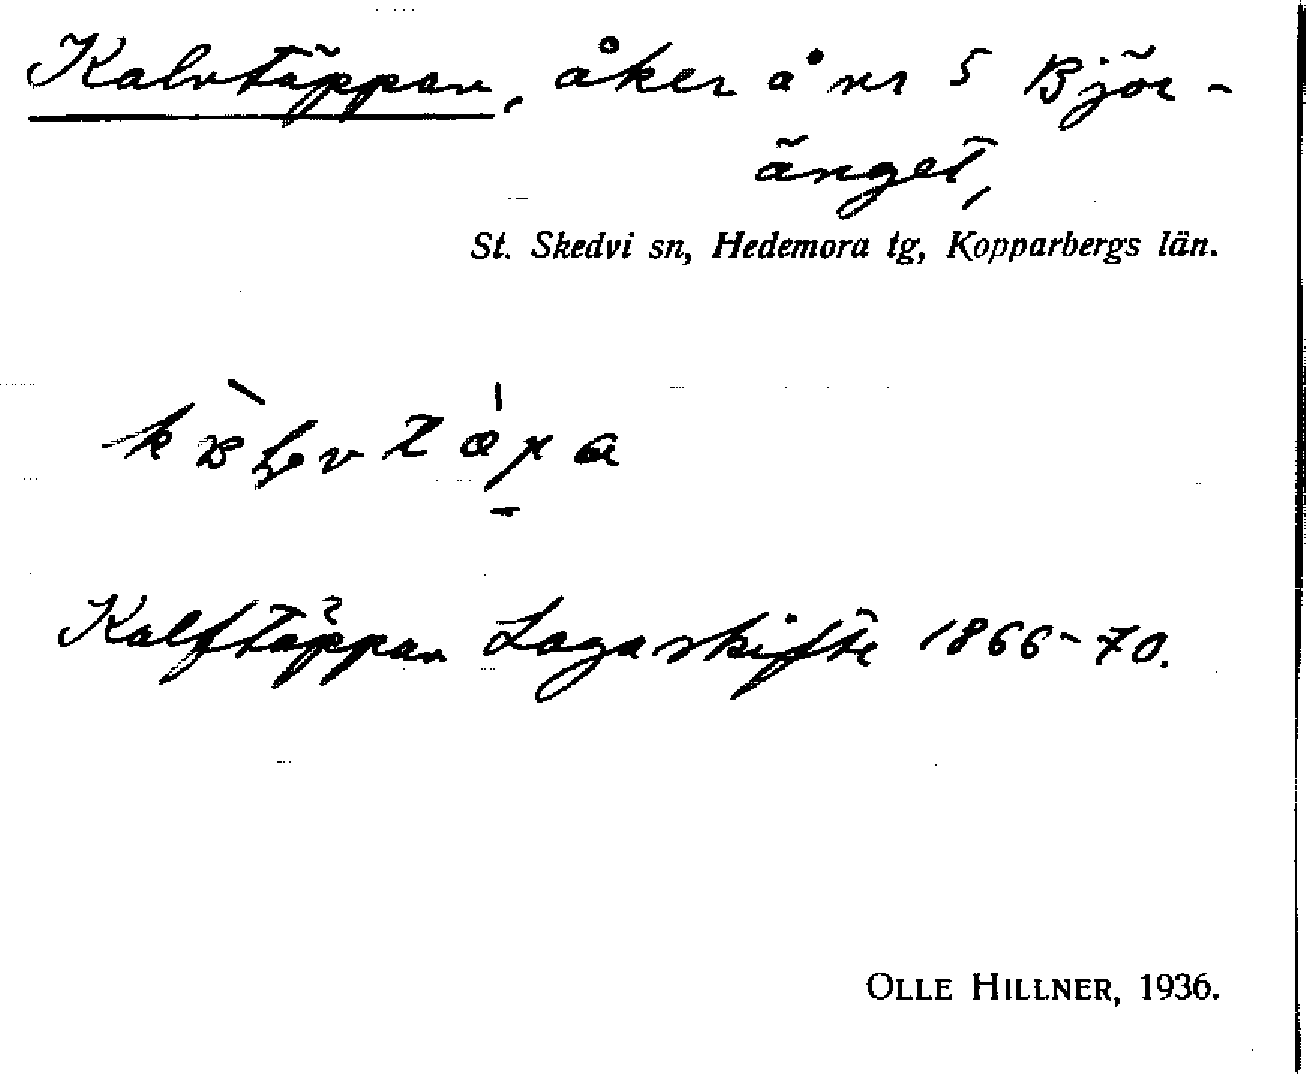 Kalvtäppan, åker å nr 5 Björ-
änget,
St. Skedvi sn, Hedemora tg, Kopparbergs län.
Kalftäppan Laga skifte 1866-70.
OLLE HILLNER, 1936.